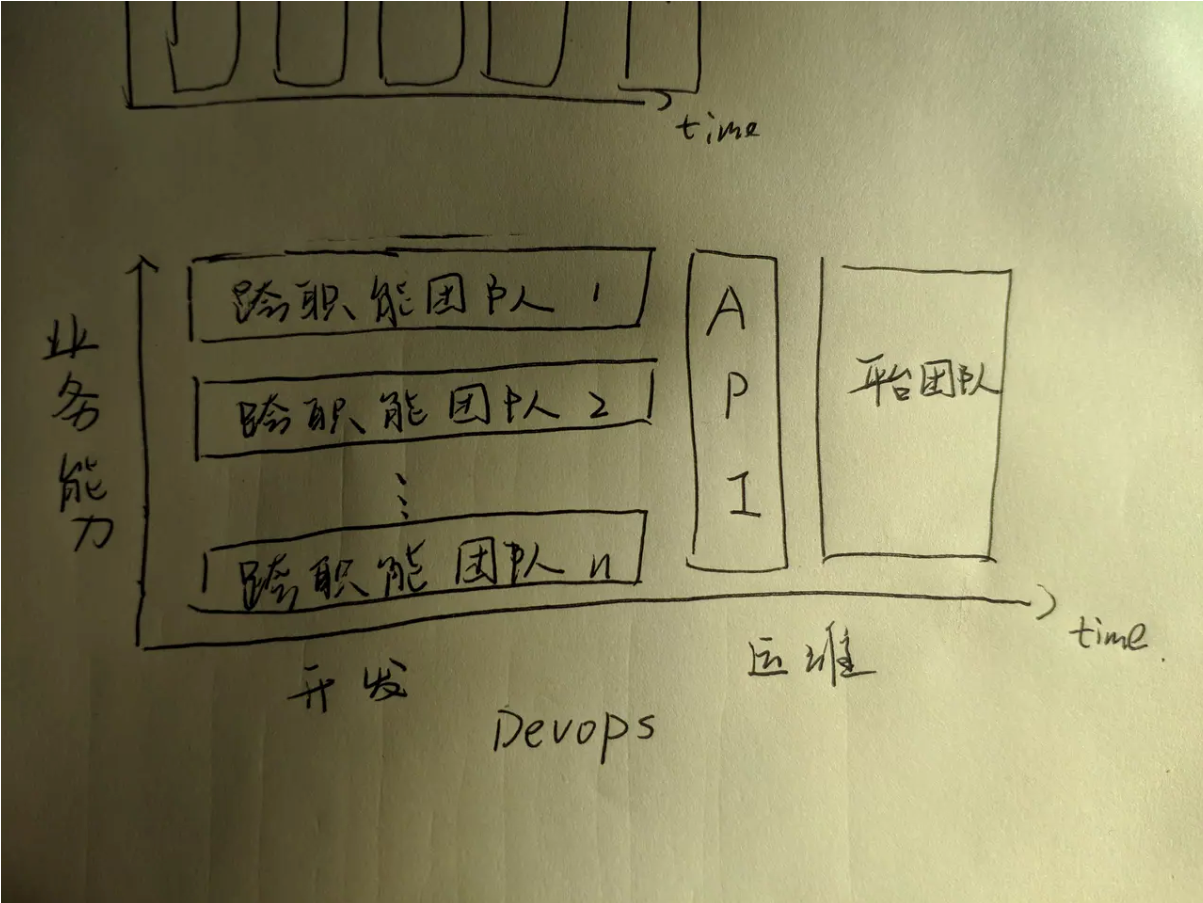 time
业务能力
跨职能团队 1
跨职能团队 2
⋮
跨职能团队 n
API
平台团队
time
开发
运维
Devops